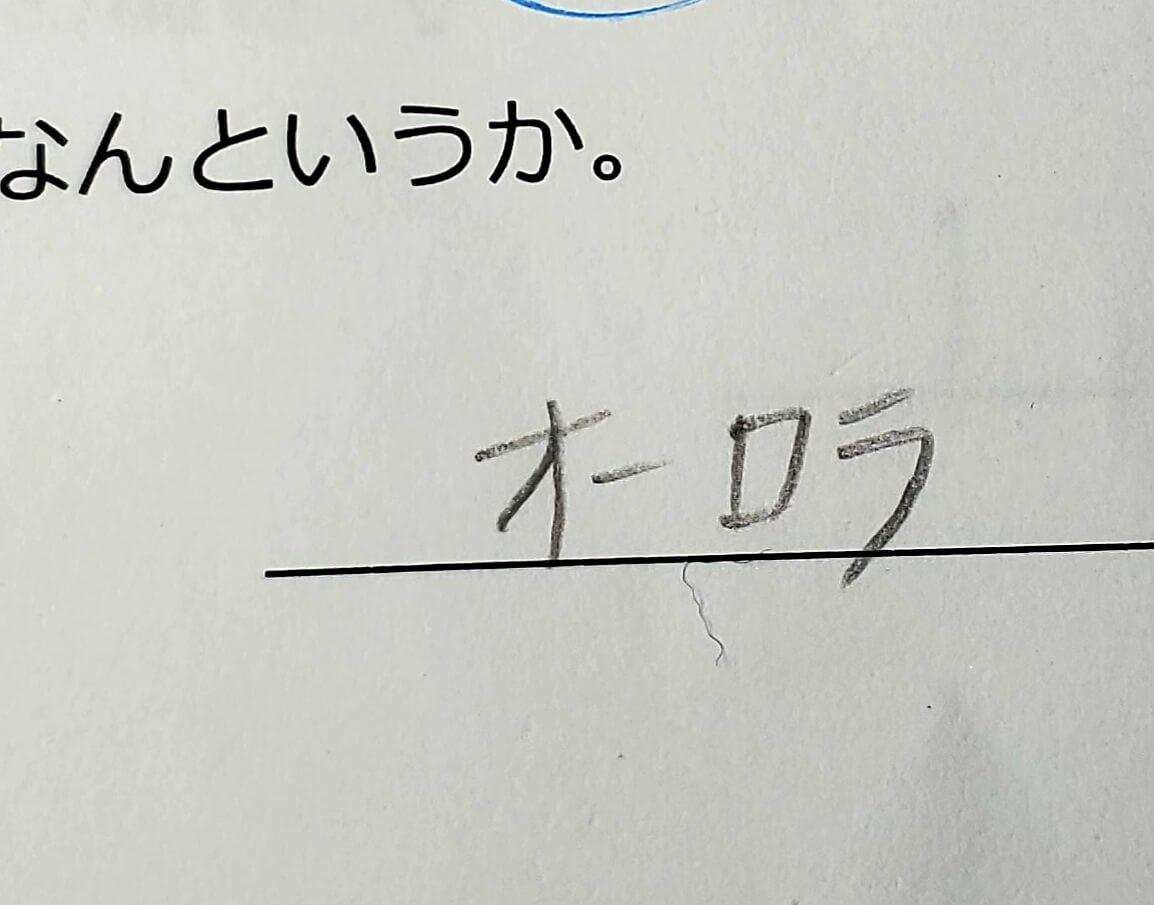 なんというか。
オーロラ